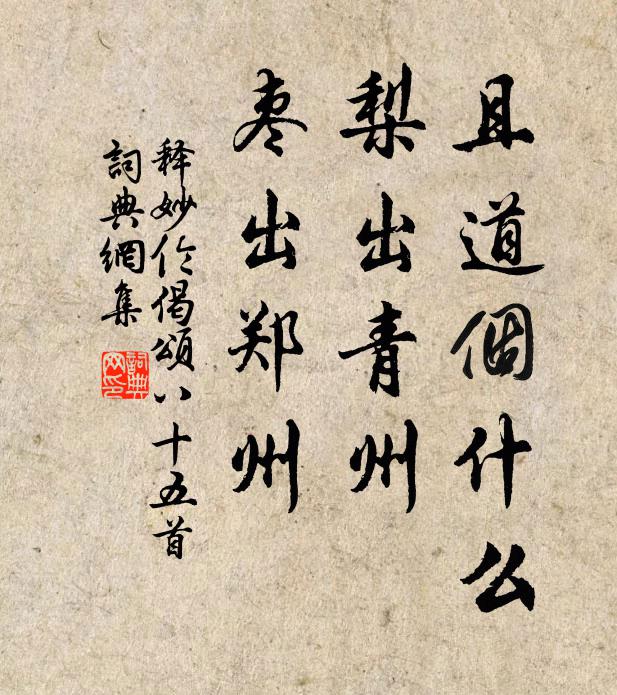 且道個什么
梨出青州
枣出郑州
释妙伦偈颂八十五首
詞典網集
詞典网印